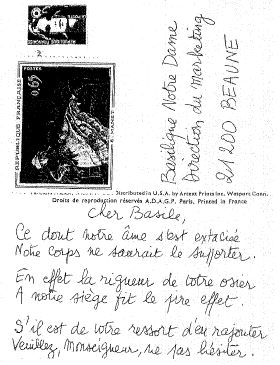 POSTES
0,65
REPUBLIQUE FRANÇAISE
Basiligne Notre Dame
Direction du Marketing
21200 BEAUNE
Distributed in U.S.A. by Artext Prints Inc. Westport Conn.
Droits de reproduction réservés A.D.A.G.P. Paris. Printed in France
Cher Basile,
Ce dont notre âme s'est extasiée
Notre corps ne saurait le supporter.
En effet la rigueur de votre osier
A notre siège fit le pire effet.
S'il est de votre ressort d'en rajouter
Veuillez, Monseigneur, ne pas hésiter.